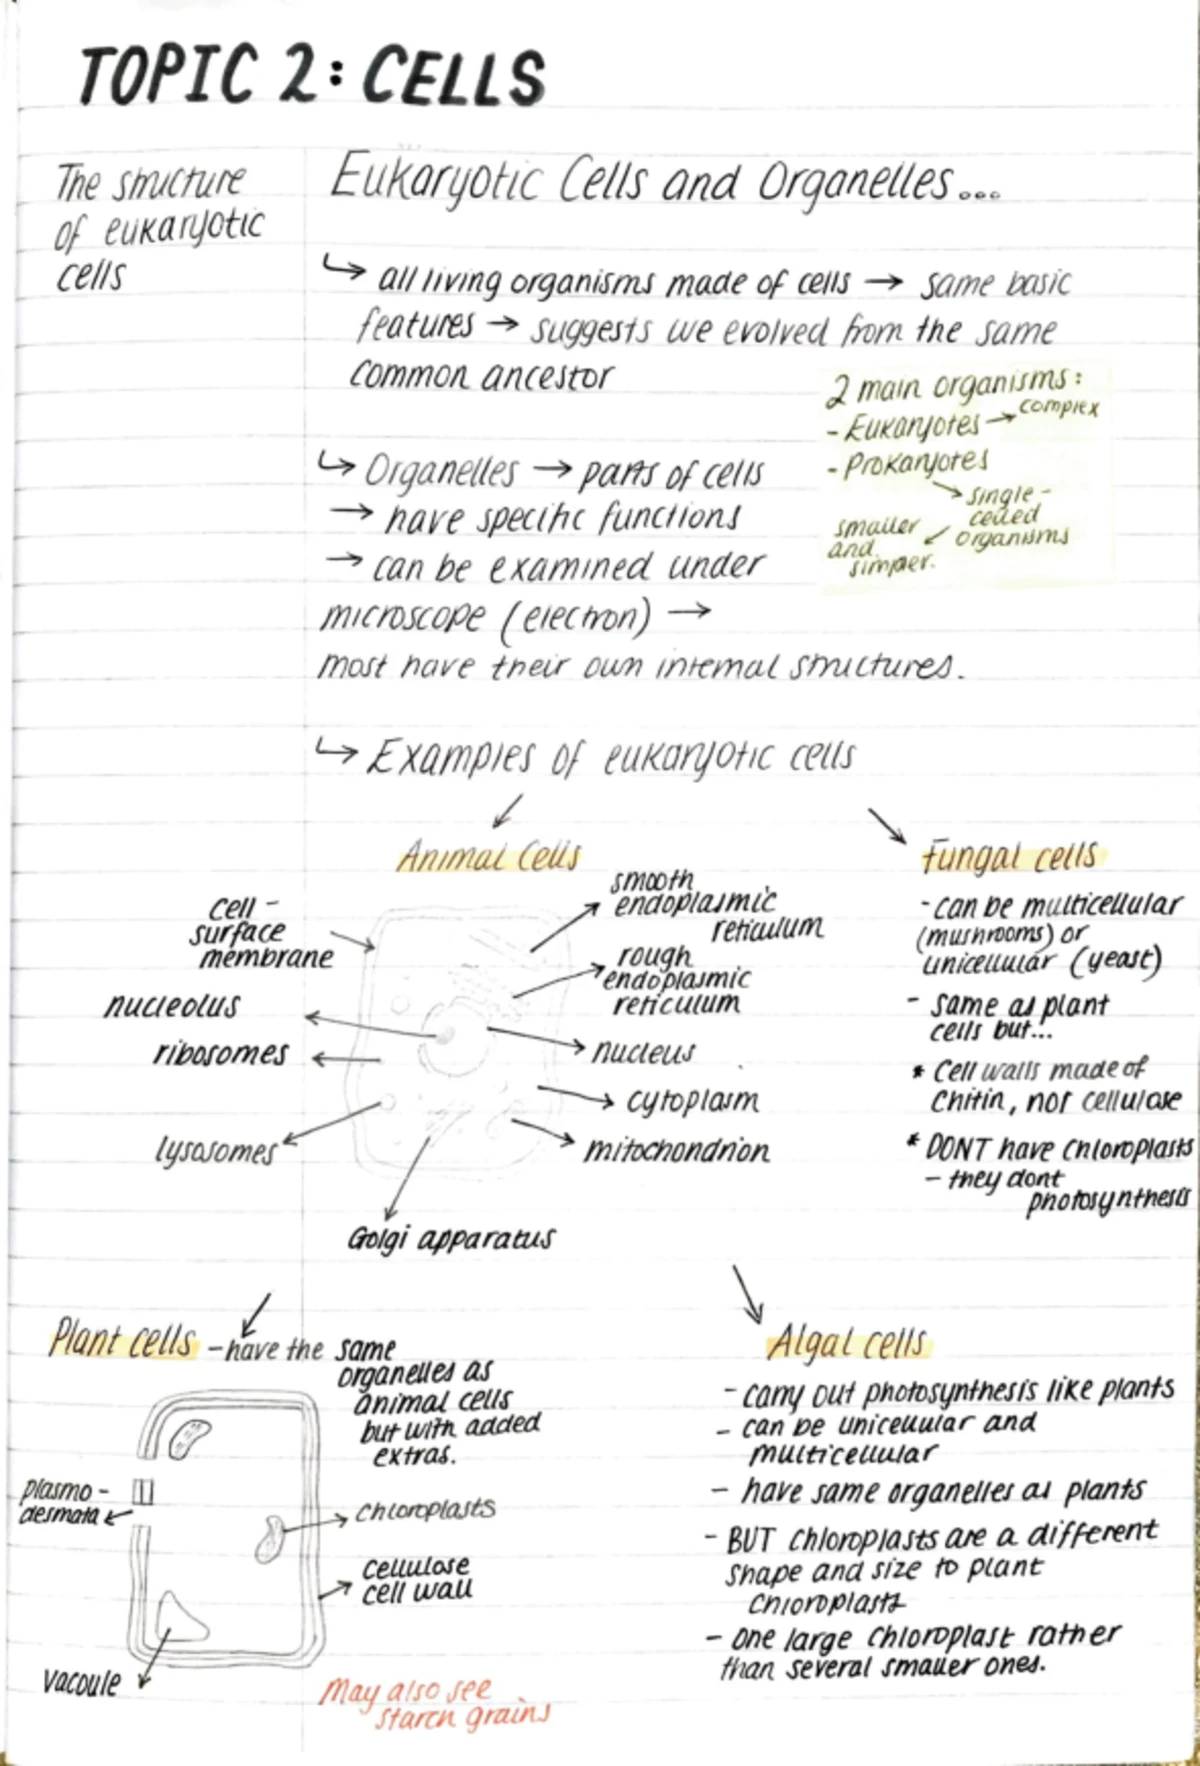 TOPIC 2: CELLS
The structure
of eukaryotic
cells
Eukaryotic Cells and Organelles...
↳ all living organisms made of cells → same basic
features → suggests we evolved from the same
common ancestor
2 main organisms:
- Eukaryotes → complex
- Prokaryotes
single-
celled
organisms
smaller
and
simpler.
↳ Organelles → parts of cells
→ have specific functions
→ can be examined under
microscope (electron) →
most have their own internal structures.
↳ Examples of eukaryotic cells
Animal Cells
cell-
surface
membrane
nucleolus
ribosomes
lysosomes
Golgi apparatus
smooth
endoplasmic
reticulum
rough
endoplasmic
reticulum
nucleus
cytoplasm
mitochondrion
Fungal cells
- can be multicellular
(mushrooms) or
unicellular (yeast)
- same as plant
cells but...
* Cell walls made of
chitin, not cellulose
* DONT have chloroplasts
- they dont
photosynthesis
Plant cells - have the same
organelles as
animal cells
but with added
extras.
plasmo-
desmata
chloroplasts
cellulose
cell wall
vacoule
May also see
starch grains
Algal cells
- carry out photosynthesis like plants
- can be unicellular and
multicellular
- have same organelles as plants
- BUT chloroplasts are a different
shape and size to plant
chloroplasts
- one large chloroplast rather
than several smaller ones.